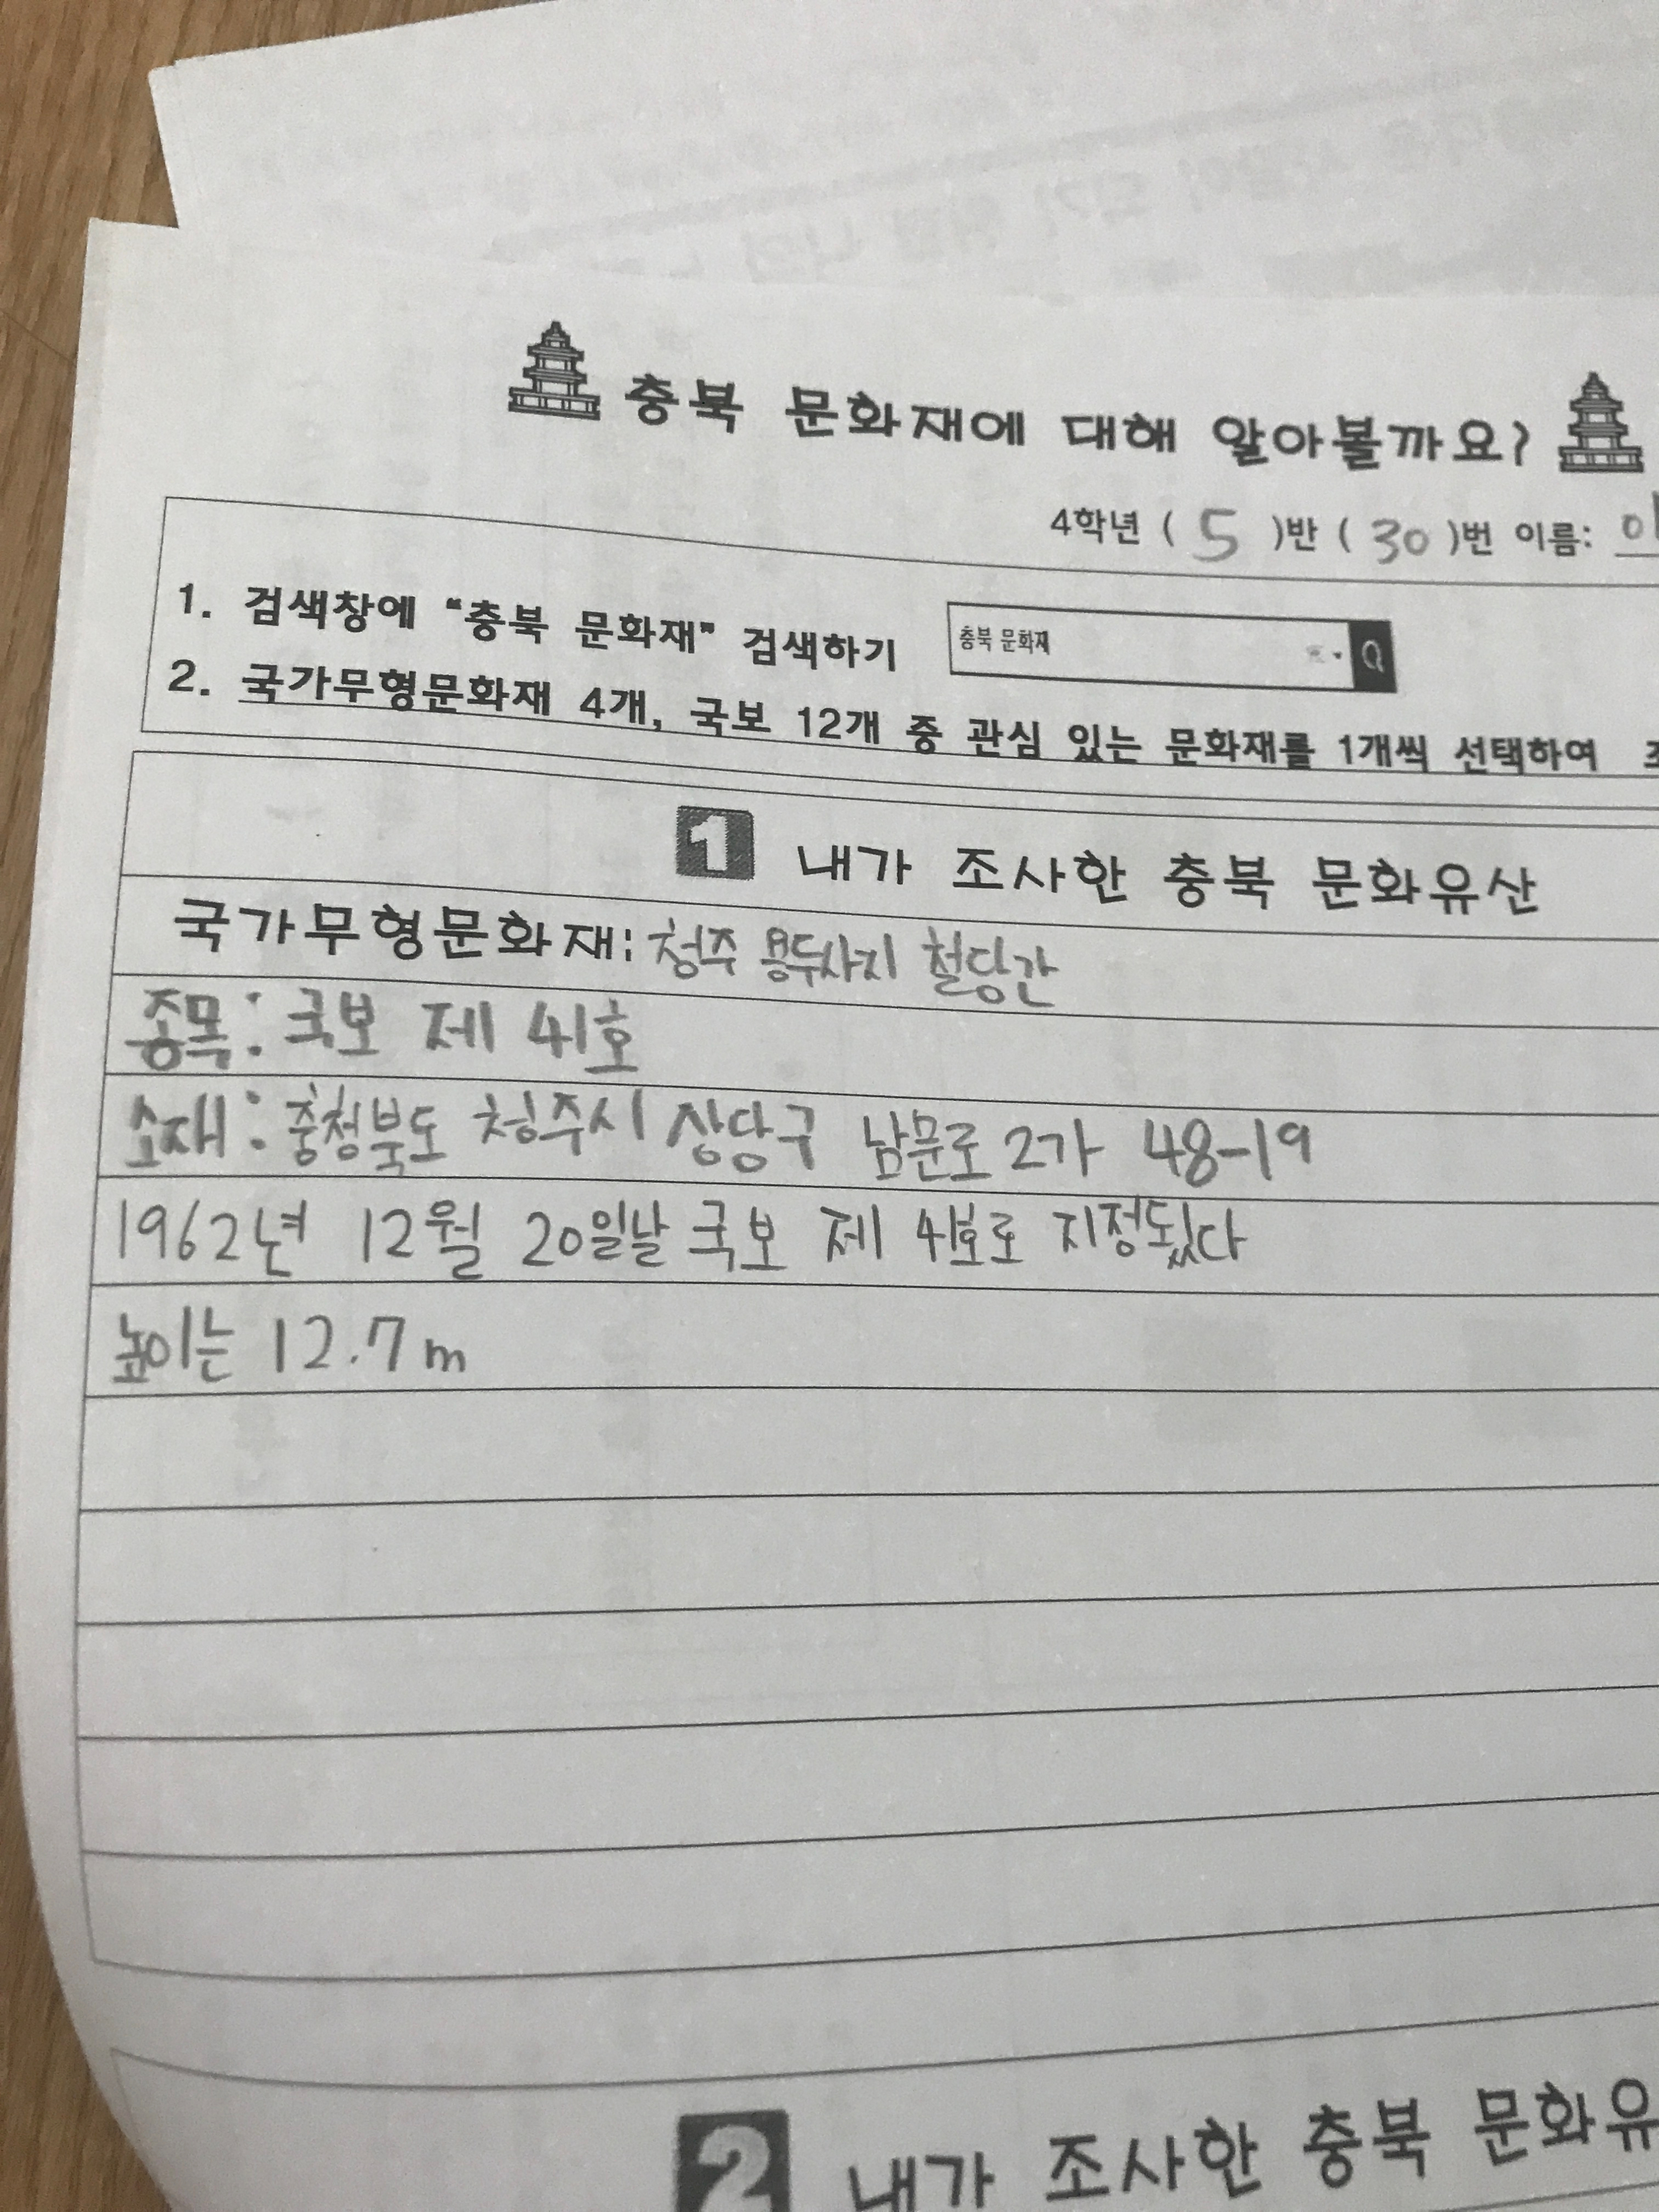 충북 문화재에 대해 알아볼까요?
4학년 ( 5 )반 ( 30 )번 이름:
1. 검색창에 "충북 문화재" 검색하기
충북 문화재
2. 국가무형문화재 4개, 국보 12개 중 관심 있는 문화재를 1개씩 선택하여
1 내가 조사한 충북 문화유산
국가무형문화재: 청주 용두사지 철당간
종목: 국보 제 41호
소재: 충청북도 청주시 상당구 남문로 2가 48-19
1962년 12월 20일날 국보 제 41호로 지정됬다
높이는 12.7m
2 내가 조사한 충북 문화유